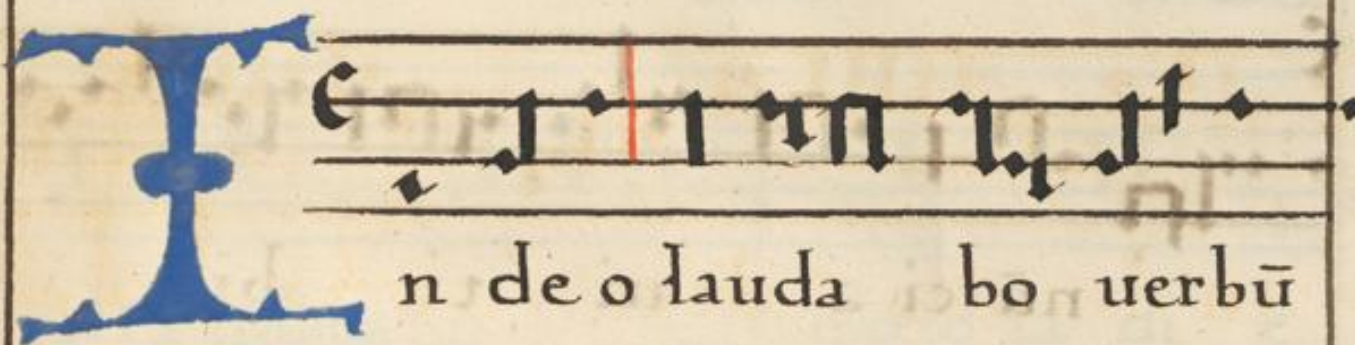 In deo lauda bo uerbū